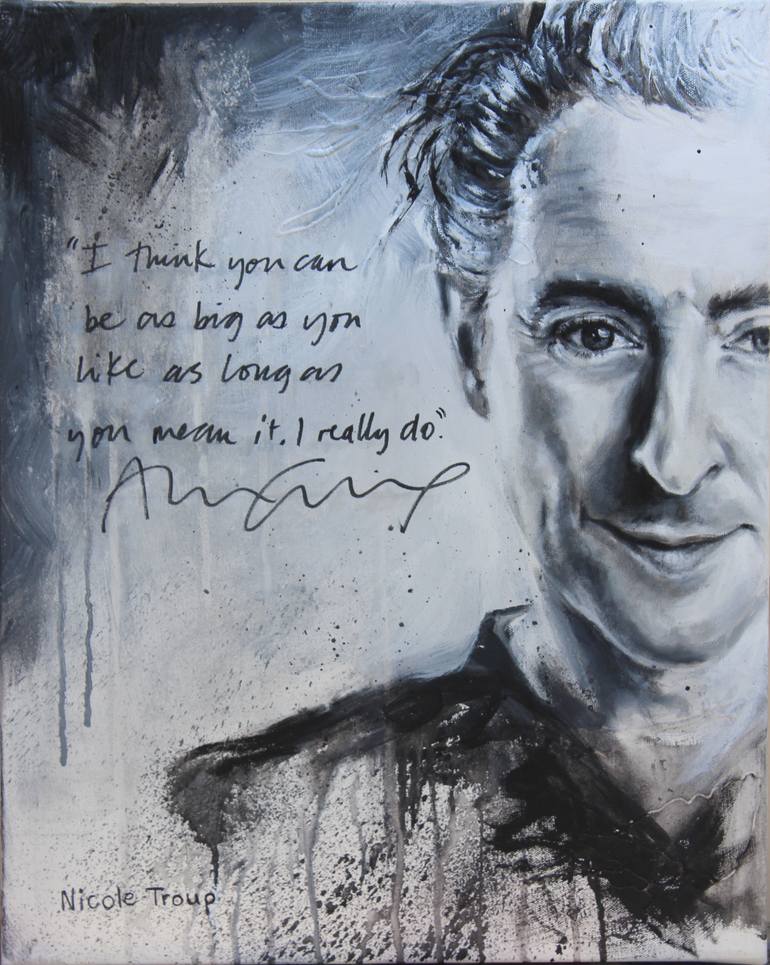 "I think you can
be as big as you
like as long as
you mean it. I really do."
Nicole Troup